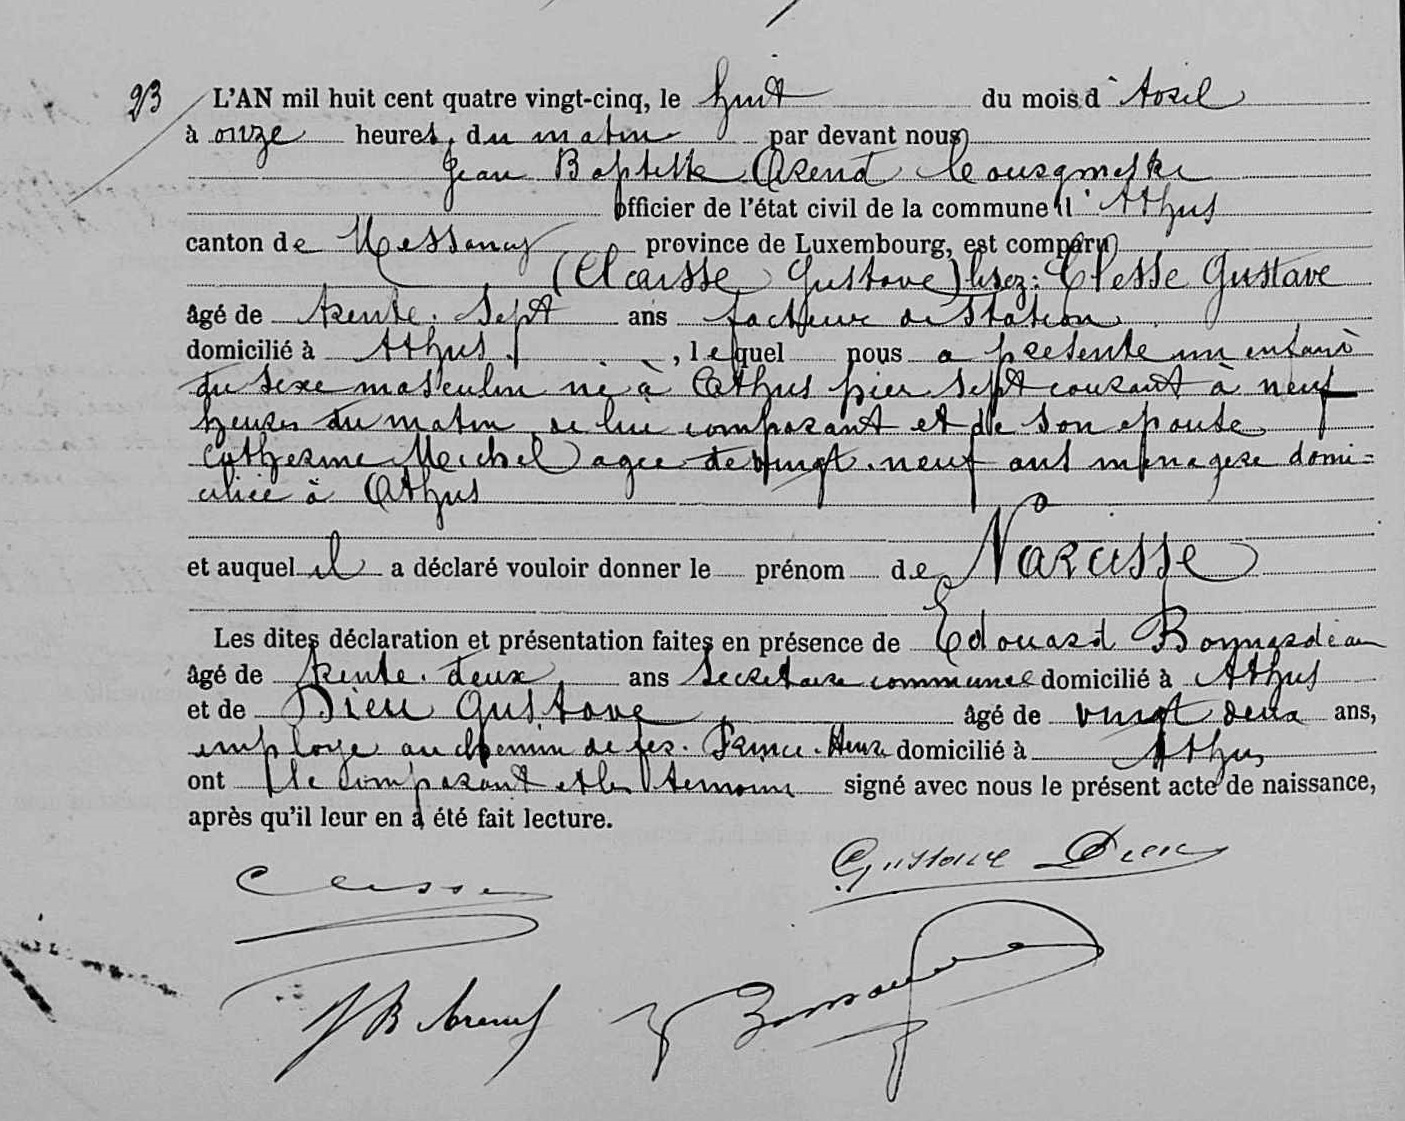 23
L'AN mil huit cent quatre vingt-cinq, le huit du mois d'Avril
à onze heures, du matin par devant nous
Jean Baptiste Arend Bourgmestre
officier de l'état civil de la commune d'Athus
canton de Messancy province de Luxembourg, est comparu
(Claisse Gustave) lisez: Clesse Gustave
âgé de trente-sept ans facteur de Station
domicilié à Athus, lequel nous a présenté un enfant
du sexe masculin né à Athus hier sept courant à neuf
heures du matin, de lui comparant et de son épouse
Catherine Meichel agée de vingt-neuf ans ménagère domi=
ciliée à Athus
et auquel il a déclaré vouloir donner le prénom de Narcisse
Les dites déclaration et présentation faites en présence de Edouard
âgé de trente-deux ans Secrétaire communal domicilié à Athus
et de Dieu Gustave âgé de vingt deux ans,
employé au chemin de fer. Prince-Henri domicilié à Athus
ont le comparant et les témoins signé avec nous le présent acte de naissance,
après qu'il leur en a été fait lecture.
Clesse Gustave Dieu
JB Arend